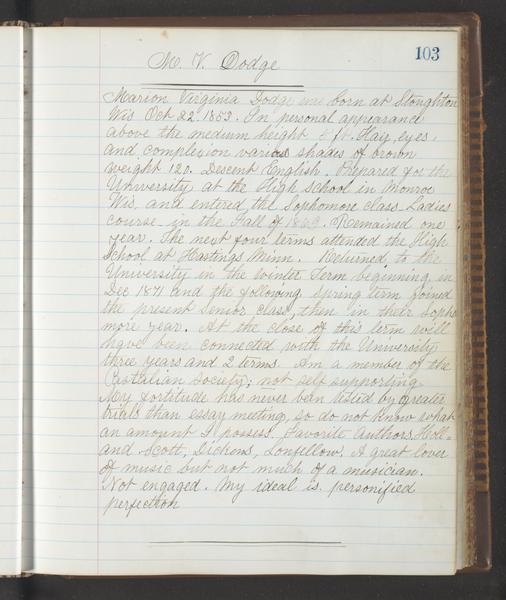 103
M. V. Dodge
Marion Virginia Dodge was born at Stoughton
Wis Oct 22 1853. In personal appearance
above the medium height 5 ft. Hair, eyes,
and complexion various shades of brown
weight 120. Descent English. Prepared for the
University at the High School in Monroe
Wis. and entered the Sophomore class Ladies
course in the Fall of 1869. Remained one
year. The next four terms attended the High
School at Hastings Minn. Returned to the
University in the winter Term beginning in
Dec 1871 and the following spring term joined
the present Senior class, then in their Sopho
more year. At the close of this term will
have been connected with the University
three years and 2 terms. Am a member of the
Castalian Society; not self supporting.
My fortitude has never been tested by greater
trials than essay meeting, so do not know what
an amount I possess. Favorite Authors, Holl=
and Scott, Dickens, Lonfellow. A great lover
of music but not much of a musician.
Not engaged. My ideal is personified
perfection